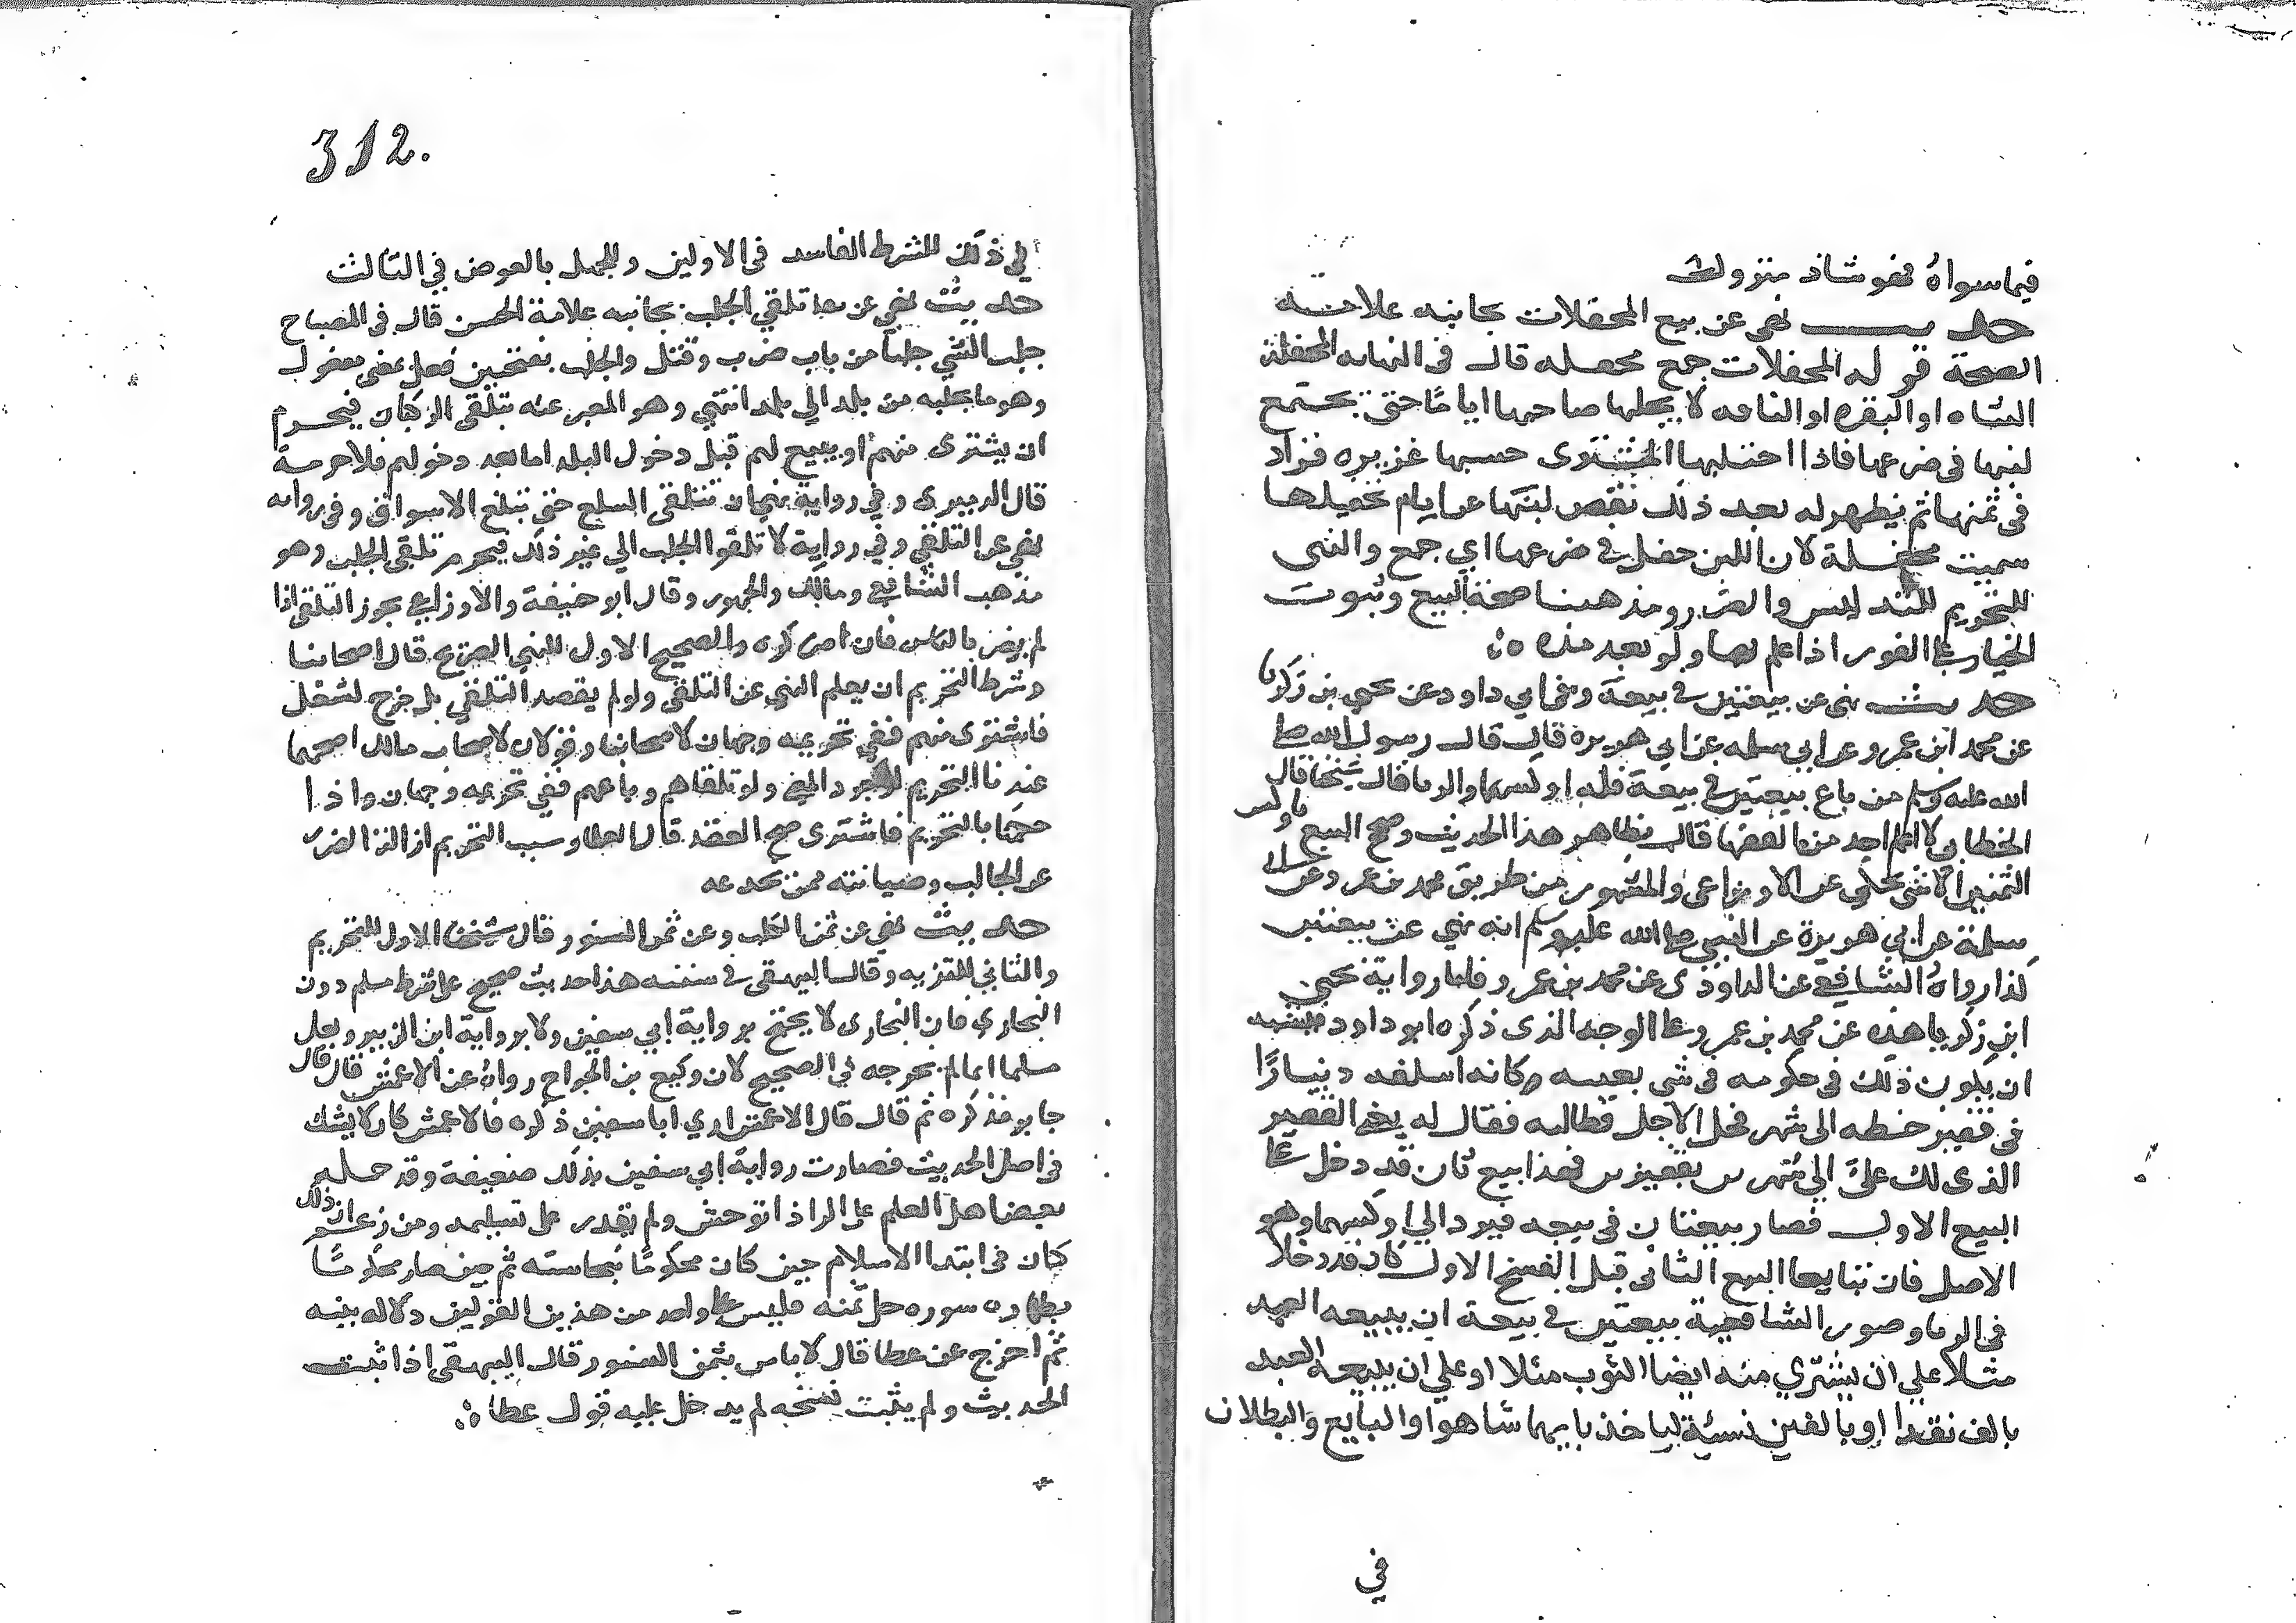 فيما سواه فهو شاذ متروك
حديث نهى عن بيع المحفلات بجانبه علامة
الصحة قوله المحفلات جمع محفله قال في النهاية المحفلة
الشاه او البقره او الناقه لا يحلبها صاحبها اياما حتى يجتمع
لبنها في ضرعها فاذا احتلبها المشترى حسبها غزيره فزاد
في ثمنها ثم يظهر له بعد ذلك نقص لبنها عن ايام تحفيلها
سميت محفلة لان اللبن حفل في ضرعها اي جمع والنهى
للتحريم للتدليس والضرر ومذهبنا صحة البيع وثبوت
الخيار على الفور اذا علم بها ولو بعد مده
حديث نهى عن بيعتين في بيعة وفي ابي داود عن يحيى بن زكريا
عن محمد ابن عمرو عن ابي سلمه عن ابي هريره قال قال رسول الله صلى
الله عليه وسلم من باع بيعتين في بيعة فله اوكسهما والربا قال شيخنا قال
الخطابي لا اعلم احد من الفقها قال بظاهر هذا الحديث وصحح البيع باوكس
الثمنين الا شى يحكى عن الاوزاعى والمشهور من طريق محمد بن عمرو عن ابي
سلمة عن ابي هريرة عن النبي صلى الله عليه وسلم انه نهي عن بيعتين
كذا رواه الشافعي عن الداوردى عن محمد بن عمرو فاما رواية يحيى
ابن زكريا هذه عن محمد بن عمرو على الوجه الذى ذكره ابو داود فيشبه
ان يكون ذلك في حكومه في شى بعينه وكانه اسلفه دينارا
في قفيز حنطه الى شهر فحل الاجل فطالبه فقال له بعني القفيز
الذى لك علي الي شهرين بقفيزين فهذا بيع ثان قد دخل على
البيع الاول فصار بيعتان في بيعه فيرد الي اوكسهما وهو
الاصل فان تبايعا البيع الثانى قبل الفسخ الاول كان قد دخلا
في الربا وصور الشافعية بيعتين في بيعة ان يبيعه العبد
مثلا على ان يشتري منه ايضا الثوب مثلا او على ان يبيعه العبد
بالف نقدا او بالفين نسئة لياخذ بايهما شا هو او البايع والبطلان
في
312.
في ذلك للشرط الفاسد في الاولين وللجهل بالعوض في الثالث
حديث نهي عن تلقي الجلب بجانبه علامة الحسن قال في المصباح
جلب الشي جلبا من باب ضرب وقتل والجلب بفتحتين فعل بمعنى مفعول
وهو ما يجلبه من بلد الي بلد انتهي وهو المعبر عنه بتلقى الركبان فيحرم
ان يشترى منهم او يبيع لهم قبل دخول البلد اما بعد دخولهم فلا حرمة
قال الدميرى وفي رواية نهي ان تتلقى السلع حتى تبلغ الاسواق وفي روايه
نهي عن التلقي وفي رواية لا تلقوا الجلب الي غير ذلك فيحرم تلقي الجلب وهو
مذهب الشافعي ومالك والجمهور وقال ابو حنيفة والاوزاعي يجوز التلقي اذا
لم يضر بالناس فان اضر كره والصحيح الاول للنهي الصريح قال اصحابنا
وشرط التحريم ان يعلم النهي عن التلقي ولو لم يقصد التلقي بل خرج لشغل
فاشترى منهم ففي تحريمه وجهان لاصحابنا وقولان لاصحاب مالك اصحهما
عندنا التحريم لوجود المعنى ولو تلقاهم وباعهم ففي تحريمه وجهان واذا
حكمنا بالتحريم فاشترى صح العقد قال العلما وسبب التحريم ازالة الضرر
عن الجالب وصيانته ممن يخدعه
حديث نهي عن ثمن الكلب وعن ثمن السنور قال شيخنا الاول للتحريم
والثاني للتنزيه وقال البيهقى في سننه هذا حديث صحيح على شرط مسلم دون
البخاري فان البخارى لا يحتج برواية ابي سفين ولا برواية ابن الزبير ولعل
مسلما انما لم يخرجه في الصحيح لان وكيع بن الجراح رواه عن الاعمش قال قال
جابر فذكره ثم قال قال الاعمش اري ابا سفين ذكره فالاعمش كان لا يشك
في اصل الحديث فصارت رواية ابي سفين بذلك ضعيفة وقد حمله
بعض اهل العلم على الهر اذا توحش ولم يقدر على تسليمه ومن زعم ان ذلك
كان في ابتدا الاسلام حين كان محكوما بنجاسته ثم حين صار محكوما
بطهاره سوره حل ثمنه فليس على واحد من هذين القولين دلاله بينه
ثم اخرج عن عطا قال لا باس بثمن السنور قال البيهقى اذا ثبت
الحديث ولم يثبت نسخه لم يدخل عليه قول عطا